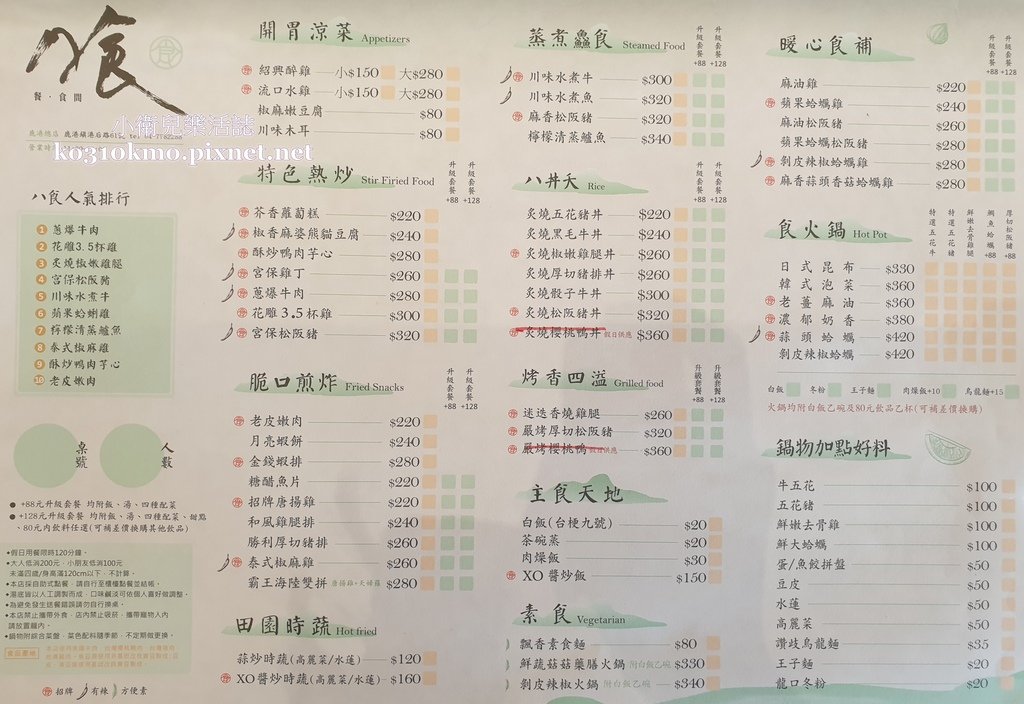 八食
餐·食間
小衛兒樂活誌
ko310kmo.pixnet.net
鹿港總店
營業時
八食人氣排行
1 蔥爆牛肉
2 花雕3.5杯雞
3 炙燒椒嫩雞腿
4 宮保松阪豬
5 川味水煮牛
6 蘋果蛤蜊雞
7 檸檬清蒸鱸魚
8 泰式椒麻雞
9 酥炒鴨肉芋心
10 老皮嫩肉
桌號
人數
● +88元升級套餐 均附飯、湯、四種配菜
● +128元升級套餐 均附飯、湯、四種配菜、甜點
、80元內飲料任選(可補差價換購其他飲品)
•假日用餐限時120分鐘。
•大人低消200元，小朋友低消100元
未滿四歲/身高滿120cm以下，不計算。
•本店採自助式點餐，請自行至櫃檯點餐並結帳。
•湯底皆以人工調製而成，口味鹹淡可依個人喜好做調整。
•為避免發生送餐錯誤請勿自行換桌。
•本店禁止攜帶外食，店內禁止吸菸，攜帶寵物入內
請放置籠內。
•鍋物附綜合菜盤，菜色配料隨季節，不定期做更換。
招牌 有辣 方便素
開胃涼菜 Appetizers
紹興醉雞 小$150 大$280
流口水雞 小$150 大$280
椒麻嫩豆腐 $80
川味木耳 $80
特色熱炒 Stir Firied Food
升級套餐+88 升級套餐+128
芥香蘿蔔糕 $220
椒香麻婆熊貓豆腐 $240
酥炒鴨肉芋心 $280
宮保雞丁 $260
蔥爆牛肉 $280
花雕3.5杯雞 $300
宮保松阪豬 $320
脆口煎炸 Fried Snacks
升級套餐+88 升級套餐+128
老皮嫩肉 $220
月亮蝦餅 $240
金錢蝦排 $280
糖醋魚片 $220
招牌唐揚雞 $220
和風雞腿排 $240
勝利厚切豬排 $260
泰式椒麻雞 $260
霸王海陸雙拼 唐揚雞+天婦羅 $280
田園時蔬 Hot fried
蒜炒時蔬(高麗菜/水蓮) $120
XO醬炒時蔬(高麗菜/水蓮) $160
蒸煮鱻食 Steamed Food
升級套餐+88 升級套餐+128
川味水煮牛 $300
川味水煮魚 $320
麻香松阪豬 $320
檸檬清蒸鱸魚 $340
八丼夭 Rice
升級套餐+88 升級套餐+128
炙燒五花豬丼 $220
炙燒黑毛牛丼 $240
炙燒椒嫩雞腿丼 $260
炙燒厚切豬排丼 $260
炙燒骰子牛丼 $300
炙燒松阪豬丼 $320
炙燒櫻桃鴨丼 假日供應 $360
烤香四溢 Grilled food
升級套餐+88 升級套餐+128
迷迭香燒雞腿 $260
嚴烤厚切松阪豬 $320
嚴烤櫻桃鴨 假日供應 $360
主食天地
白飯(台梗九號) $20
茶碗蒸 $20
肉燥飯 $30
XO 醬炒飯 $150
素食 Vegetarian
飄香素食麵 $80
鮮蔬菇菇藥膳火鍋 附白飯乙碗 $330
剝皮辣椒火鍋 附白飯乙碗 $340
暖心食補
升級套餐+88 升級套餐+128
麻油雞 $220
蘋果蛤蠣雞 $240
麻油松阪豬 $260
蘋果蛤蠣松阪豬 $280
剝皮辣椒蛤蠣雞 $280
麻香蒜頭香菇蛤蠣雞 $280
食火鍋 Hot Pot
特選五花牛 特選五花豬 鮮嫩去骨雞腿 鯛魚蛤蠣+88 厚切松阪豬+88
日式昆布 $330
韓式泡菜 $360
老薑麻油 $360
濃郁奶香 $380
蒜頭蛤蠣 $420
剝皮辣椒蛤蠣 $420
白飯 冬粉 王子麵 肉燥飯+10 烏龍麵+15
火鍋均附白飯乙碗及80元飲品乙杯(可補差價換購)
鍋物加點好料
牛五花 $100
五花豬 $100
鮮嫩去骨雞 $100
鮮大蛤蠣 $100
蛋/魚餃拼盤 $50
豆皮 $50
水蓮 $50
高麗菜 $50
讚歧烏龍麵 $35
王子麵 $20
龍口冬粉 $20